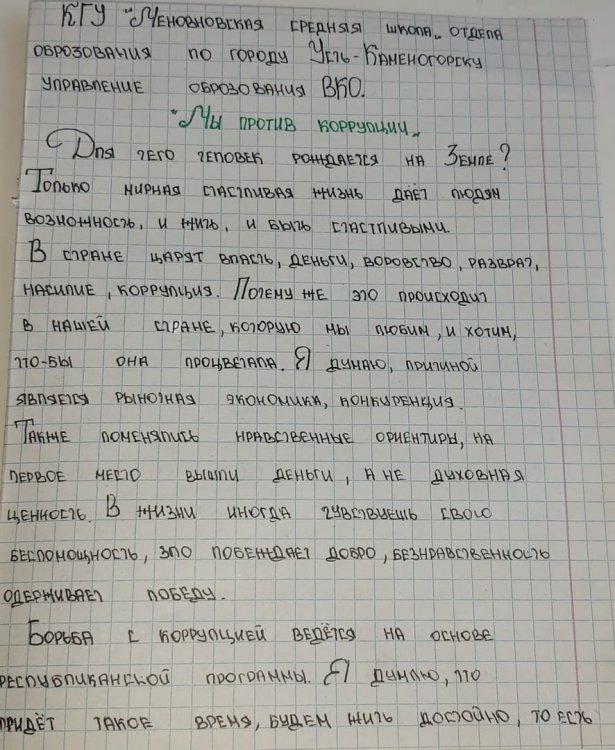 КГУ "Меновновская средняя школа" отдела
оброзования по городу Усть-Каменогорску
управление оброзования ВКО.
"Мы против коррупции"
Для чего человек рождается на Земле?
Только мирная счастливая жизнь даёт людям
возможность, и жить, и быть счастливыми.
В стране царят власть, деньги, воровство, разврат,
насилие, коррупция. Почему же это происходит
в нашей стране, которую мы любим, и хотим,
что-бы она процветала. Я думаю, причиной
является рыночная экономика, конкуренция.
Также поменялись нравственные ориентиры, на
первое место вышли деньги, а не духовная
ценность. В жизни иногда чувствуешь свою
беспомощность, зло побеждает добро, безнравственность
одерживает победу.
Борьба с коррупцией ведётся на основе
республиканской программы. Я думаю, что
придёт такое время, будем жить достойно, то есть